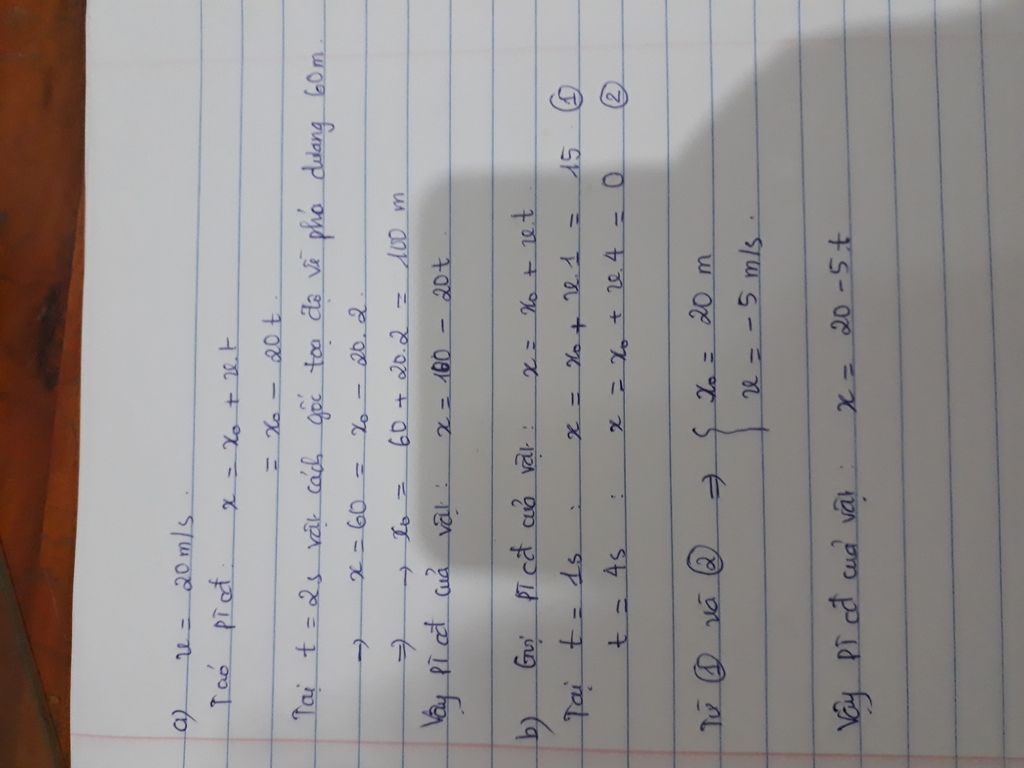 a) v = 20 m/s.
Ta có pt cđ: x = x₀ + vt
= x₀ - 20t.
Tại t = 2s vật cách gốc toạ độ về phía dương 60m.
→ x = 60 = x₀ - 20.2.
⇒ → x₀ = 60 + 20.2 = 100 m
Vậy pt cđ của vật: x = 100 - 20t.
b) Gọi pt cđ của vật: x = x₀ + vt
Tại t = 1s : x = x₀ + v.1 = 15 ①
t = 4s : x = x₀ + v4 = 0 ②
Từ ① và ② ⇒ { x₀ = 20 m
v = -5 m/s.
Vậy pt cđ của vật: x = 20 - 5t